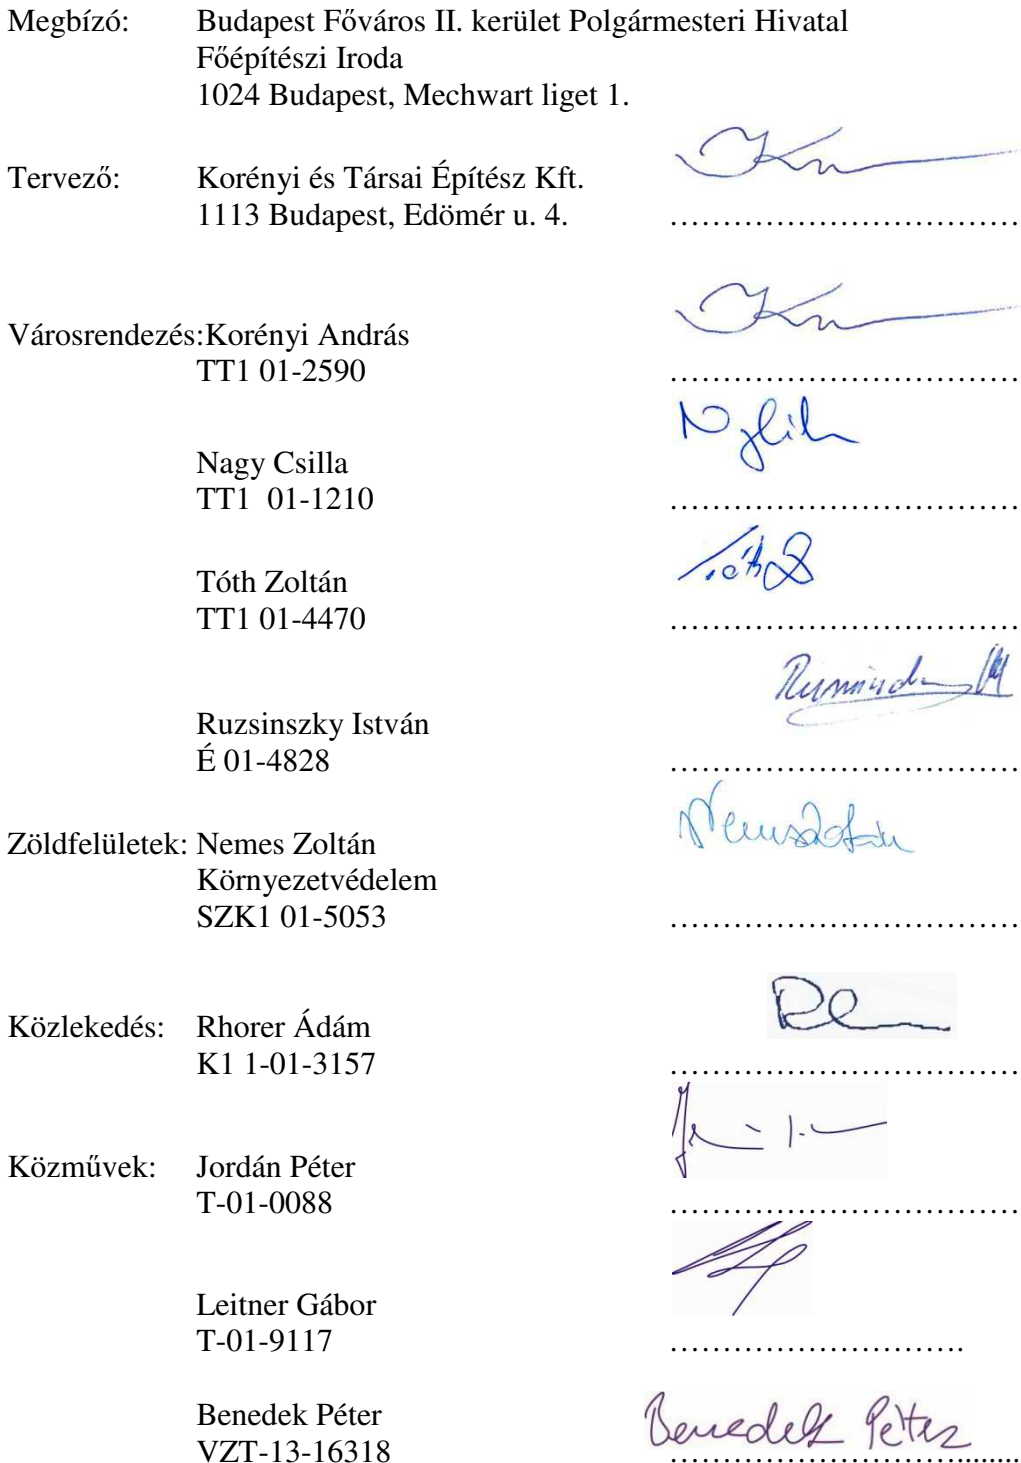 Megbízó: Budapest Főváros II. kerület Polgármesteri Hivatal
Főépítészi Iroda
1024 Budapest, Mechwart liget 1.
Tervező: Korényi és Társai Építész Kft.
1113 Budapest, Edömér u. 4. ……………………………
Városrendezés:Korényi András
TT1 01-2590 ……………………………
Nagy Csilla
TT1 01-1210 ……………………………
Tóth Z
Tóth Zoltán
TT1 01-4470 ……………………………
Ruzsinszky István
É 01-4828 ……………………………
Zöldfelületek: Nemes Zoltán Nemes Zoltán
Környezetvédelem
SZK1 01-5053 ……………………………
Közlekedés: Rhorer Ádám
K1 1-01-3157 ……………………………
Közművek: Jordán Péter
T-01-0088 ……………………………
Leitner Gábor
T-01-9117 ……………………….
Benedek Péter Benedek Péter
VZT-13-16318 ……………………….........